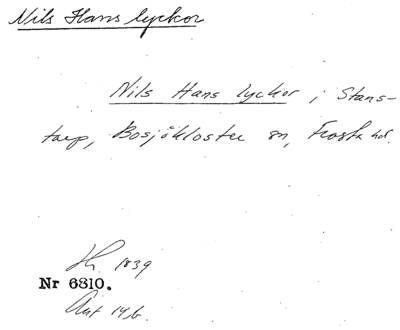 Nils Hans lyckor
Nils Hans lyckor i Stans-
torp, Bosjökloster sn, Frosta hd.
1839
Nr 6810.
Ant 14/6.